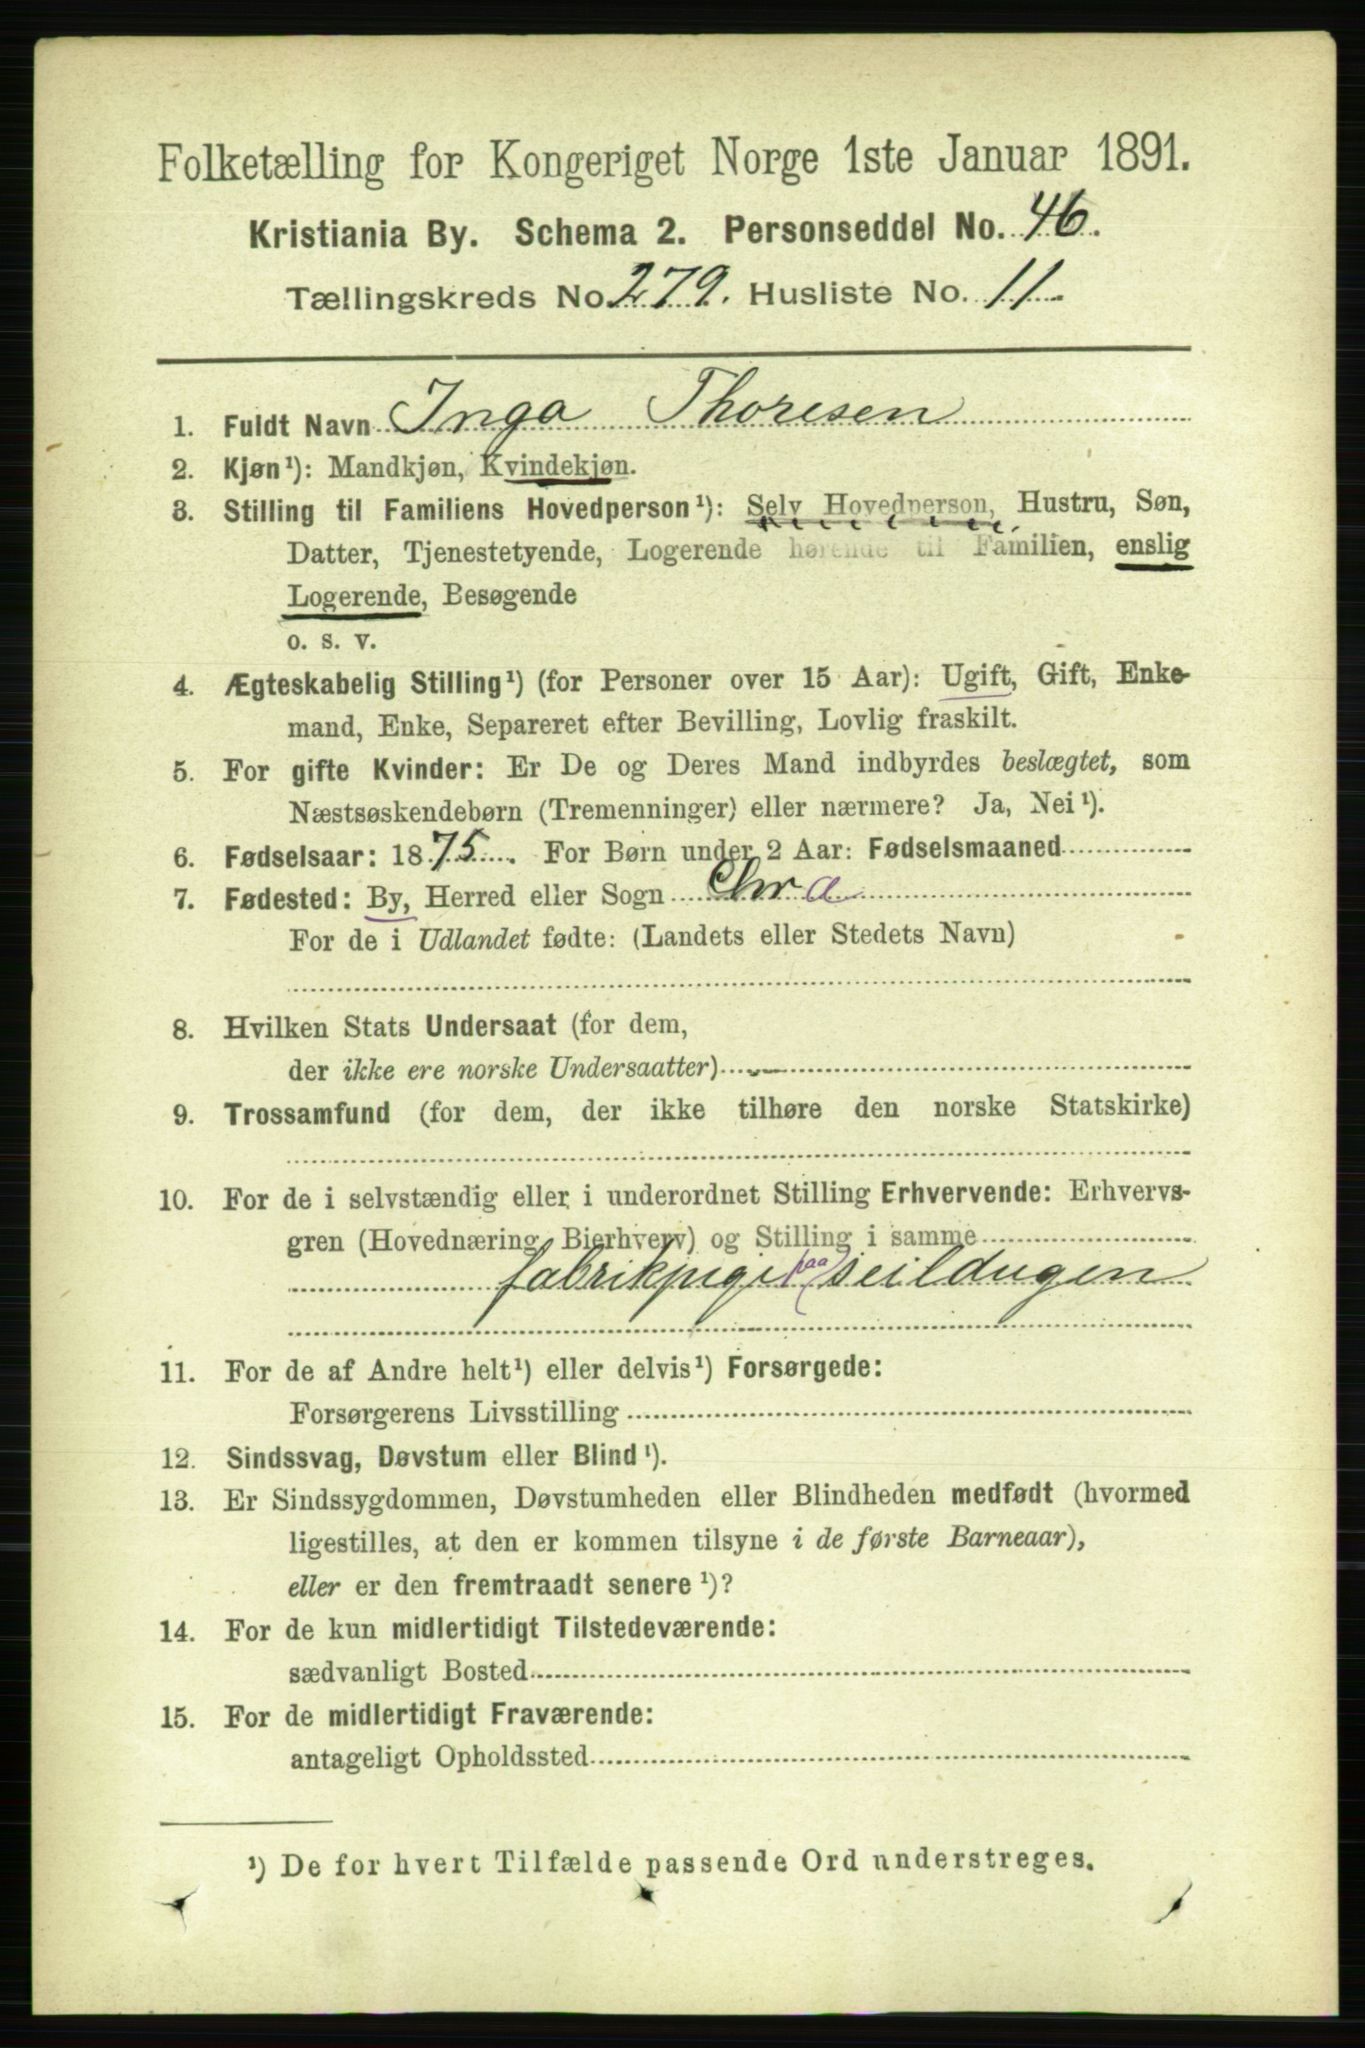 Folketælling for Kongeriget Norge 1ste Januar 1891.
Kristiania By. Schema 2. Personseddel No. 46.
Tællingskreds No. 279. Husliste No. 11.
1. Fuldt Navn Inga Thoresen
2. Kjøn¹): Mandkjøn, Kvindekjøn.
3. Stilling til Familiens Hovedperson¹): Selv Hovedperson, Hustru, Søn,
Datter, Tjenestetyende, Logerende hørende til Familien, enslig
Logerende, Besøgende
o. s. v.
4. Ægteskabelig Stilling¹) (for Personer over 15 Aar): Ugift, Gift, Enke-
mand, Enke, Separeret efter Bevilling, Lovlig fraskilt.
5. For gifte Kvinder: Er De og Deres Mand indbyrdes beslægtet, som
Næstsøskendebørn (Tremenninger) eller nærmere? Ja, Nei¹).
6. Fødselsaar: 1875. For Børn under 2 Aar: Fødselsmaaned
7. Fødested: By, Herred eller Sogn Chra
For de i Udlandet fødte: (Landets eller Stedets Navn)
8. Hvilken Stats Undersaat (for dem,
der ikke ere norske Undersaatter)
9. Trossamfund (for dem, der ikke tilhøre den norske Statskirke)
10. For de i selvstændig eller i underordnet Stilling Erhvervende: Erhvervs-
gren (Hovednæring, Bierhverv) og Stilling i samme
fabrikpige paa seildugen
11. For de af Andre helt¹) eller delvis¹) Forsørgede:
Forsørgerens Livsstilling
12. Sindssvag, Døvstum eller Blind¹).
13. Er Sindssygdommen, Døvstumheden eller Blindheden medfødt (hvormed
ligestilles, at den er kommen tilsyne i de første Barneaar),
eller er den fremtraadt senere¹)?
14. For de kun midlertidigt Tilstedeværende:
sædvanligt Bosted
15. For de midlertidigt Fraværende:
antageligt Opholdssted
¹) De for hvert Tilfælde passende Ord understreges.